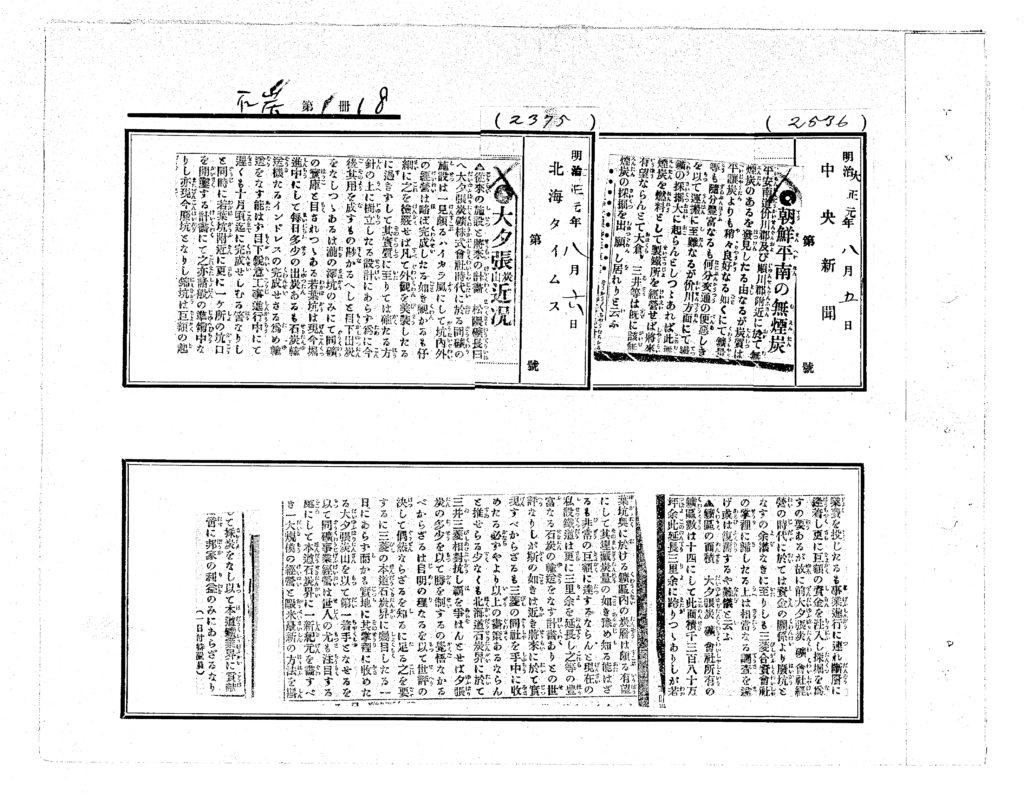 石炭 第 1 冊 18
(2536)
明治大正元年八月五日
中央新聞
第 號
朝鮮平南の無煙炭
平安南道价川郡及び順川郡附近に於て無
煙炭のあるを發見したる由なるが炭質は
平壤炭よりも稍々良好なる如くにて鑛量
等も隨分豐富なるも何分交通の便惡しき
を以て運搬に至難なるが价川方面にて鐵
鑛の採掘大に起らんとしつゝあれば此無
煙炭を燃料として製鐵所を經營せば將來
有望ならんとて大倉、三井等は既に該無
煙炭の採掘を出願し居れりと云ふ
(2375)
明治正元年八月六日
北海タイムス
第 號
大夕張炭山近況
▲從來の施設と將來の計畫 松隈礦長曰
へ大夕張炭礦株式會社時代に於る同礦の
施設は一見頗るハイカラ風にして坑內外
の經營は略ぼ完成したる如き觀かるも仔
細に之を檢覈せば凡て外觀を美裝したる
に過ぎずして其實質に至りては確たる方
針の上に樹立したる設計にあらず爲に今
後其用を成すもの尠かるべしと目下出炭
をなしつゝあるは瀧の澤坑のみにて同礦
の寶庫と目されつゝある若葉坑は現今掘
進中にして每日多少の出炭あるも石炭輸
送機たるインドレスの完成せざる爲め輸
送をなす能はず目下銳意工事進行中にて
遲くも十月頃迄に完成せしむる筈なりし
と同時に若葉坑附近に更に一ケ所の坑口
を開鑿する計畫にて之亦諸般の準備中な
りし亦現今廢坑となりし錦坑は巨額の起
業費を投じたるも事業進行に連れ斷層に
逢着し更に巨額の資金を注入し採掘を爲
すの要あるが故に前大夕張炭礦會社經
營の時代に於ては資金の關係より廢坑と
なすの余儀なきに至りしも三菱合資會社
の掌裡に歸したる上は相當なる調査を遂
げ或は復活するや難儀と云ふ
▲鑛區の面積 大夕張炭礦會社所有の
鑛區數は十四にして此面積千三百八十万
年余此延長三里余に跨りつゝありしが若
葉坑奧に於ける鑛區內の炭層は頗る有望
にして其運藏炭量の如き豫め知る能はざ
るも非常の巨額に達するならんと現在の
私設鐵道は更に三里余を延長し之等の豐
富なる石炭の輸送をなす計畫ありとの世
評なりしが斯の如きは近き將來に於て實
現すべからざるも三菱の同社を手中に收
めたる必ずやより以上の畫策あるならん
と推せらる少なくも北海道石炭界に於て
三井三菱相對抗し覇を爭はんとせば夕張
炭の多少を以て勝を制するの覺悟なかる
べからざるは自明の理なるを以て世評の
決して偶然ならざるを知るに足る之を要
するに三菱の本道石炭界に矚目したる一
日にあらず聞かも實地に其掌裡に收めた
る大夕張炭山を以て第一着手となせるを
以て同礦事業經營は世人の尤も注目する
處にして本道石炭界に一新紀元を畫すべ
き一大規模の經營と設備最新の方法を講
じて採炭をなし以て本道鑛業界に貢獻
啻に邦家の利益のみにあらざるなり
(一日付特派員)